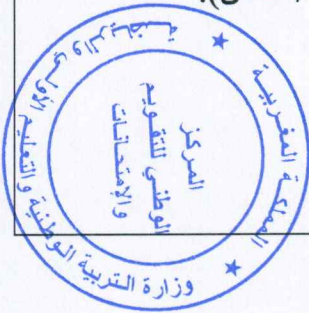 المملكة المغربية
وزارة التربية الوطنية والتعليم الأولي والرياضة
المركز
الوطني للتقويم
والامتحانات